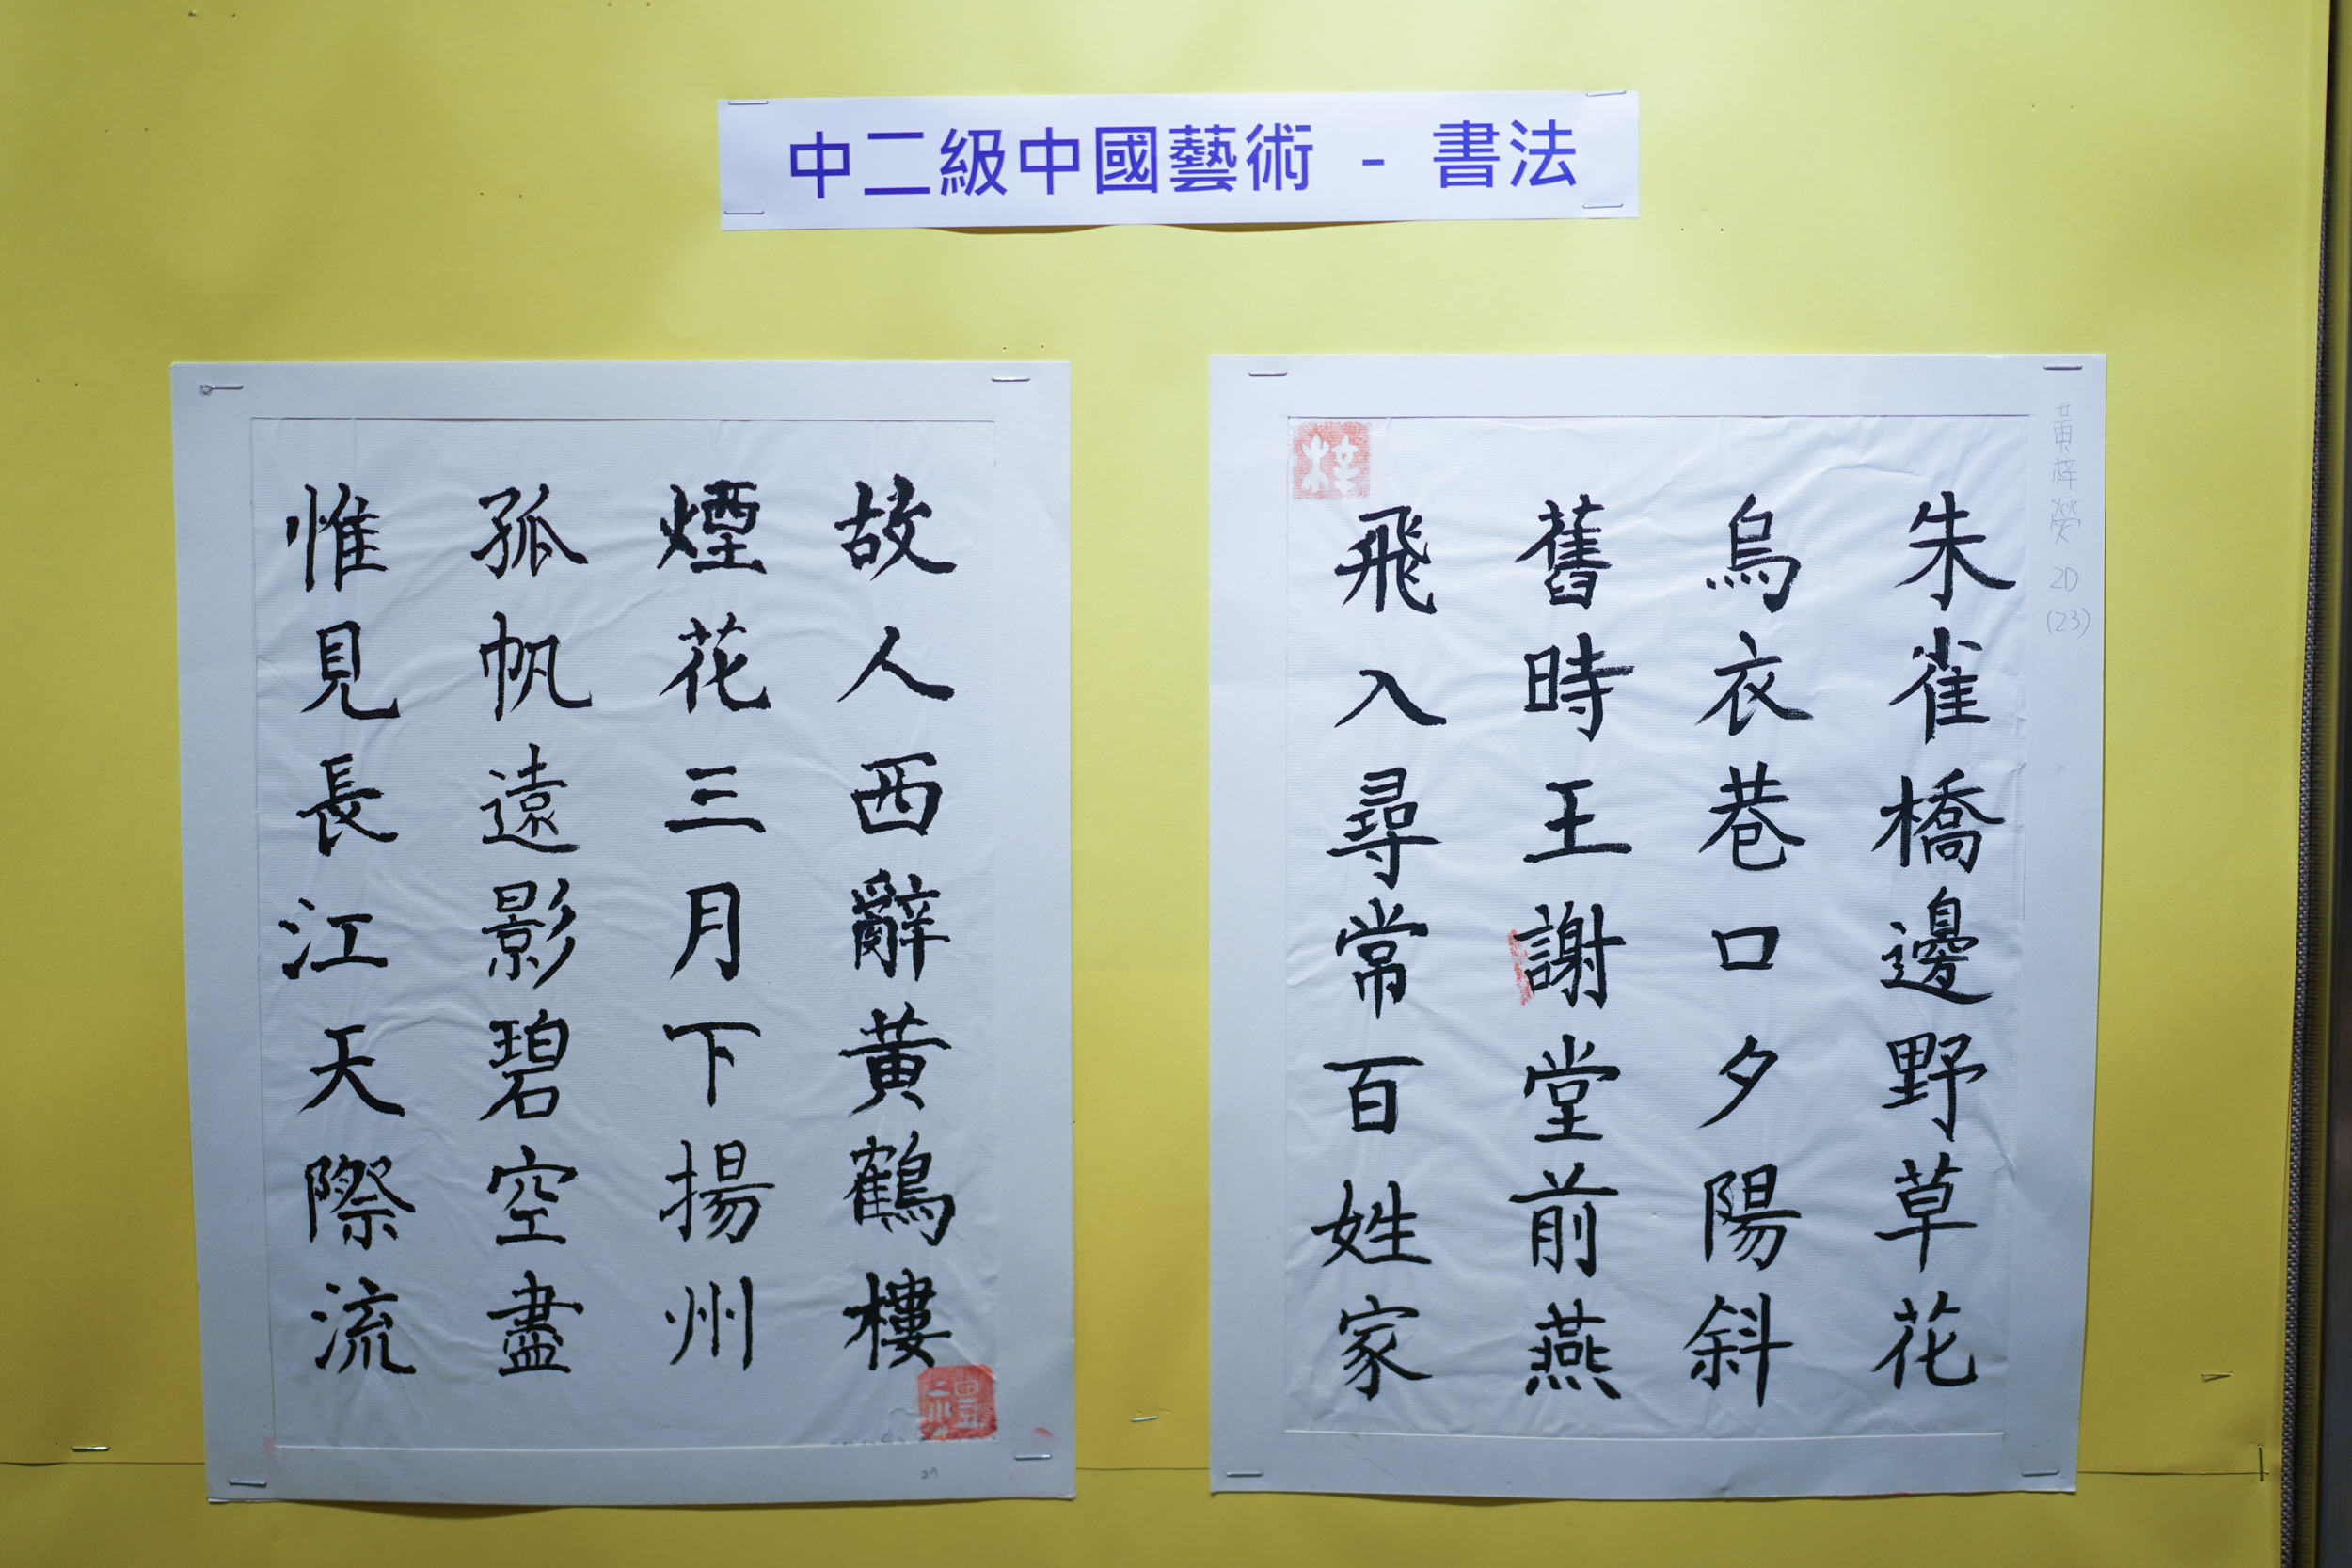 中二級中國藝術 - 書法
故人西辭黃鶴樓
煙花三月下揚州
孤帆遠影碧空盡
惟見長江天際流
29
朱雀橋邊野草花
烏衣巷口夕陽斜
舊時王謝堂前燕
飛入尋常百姓家
梓
黃梓 2D (23)